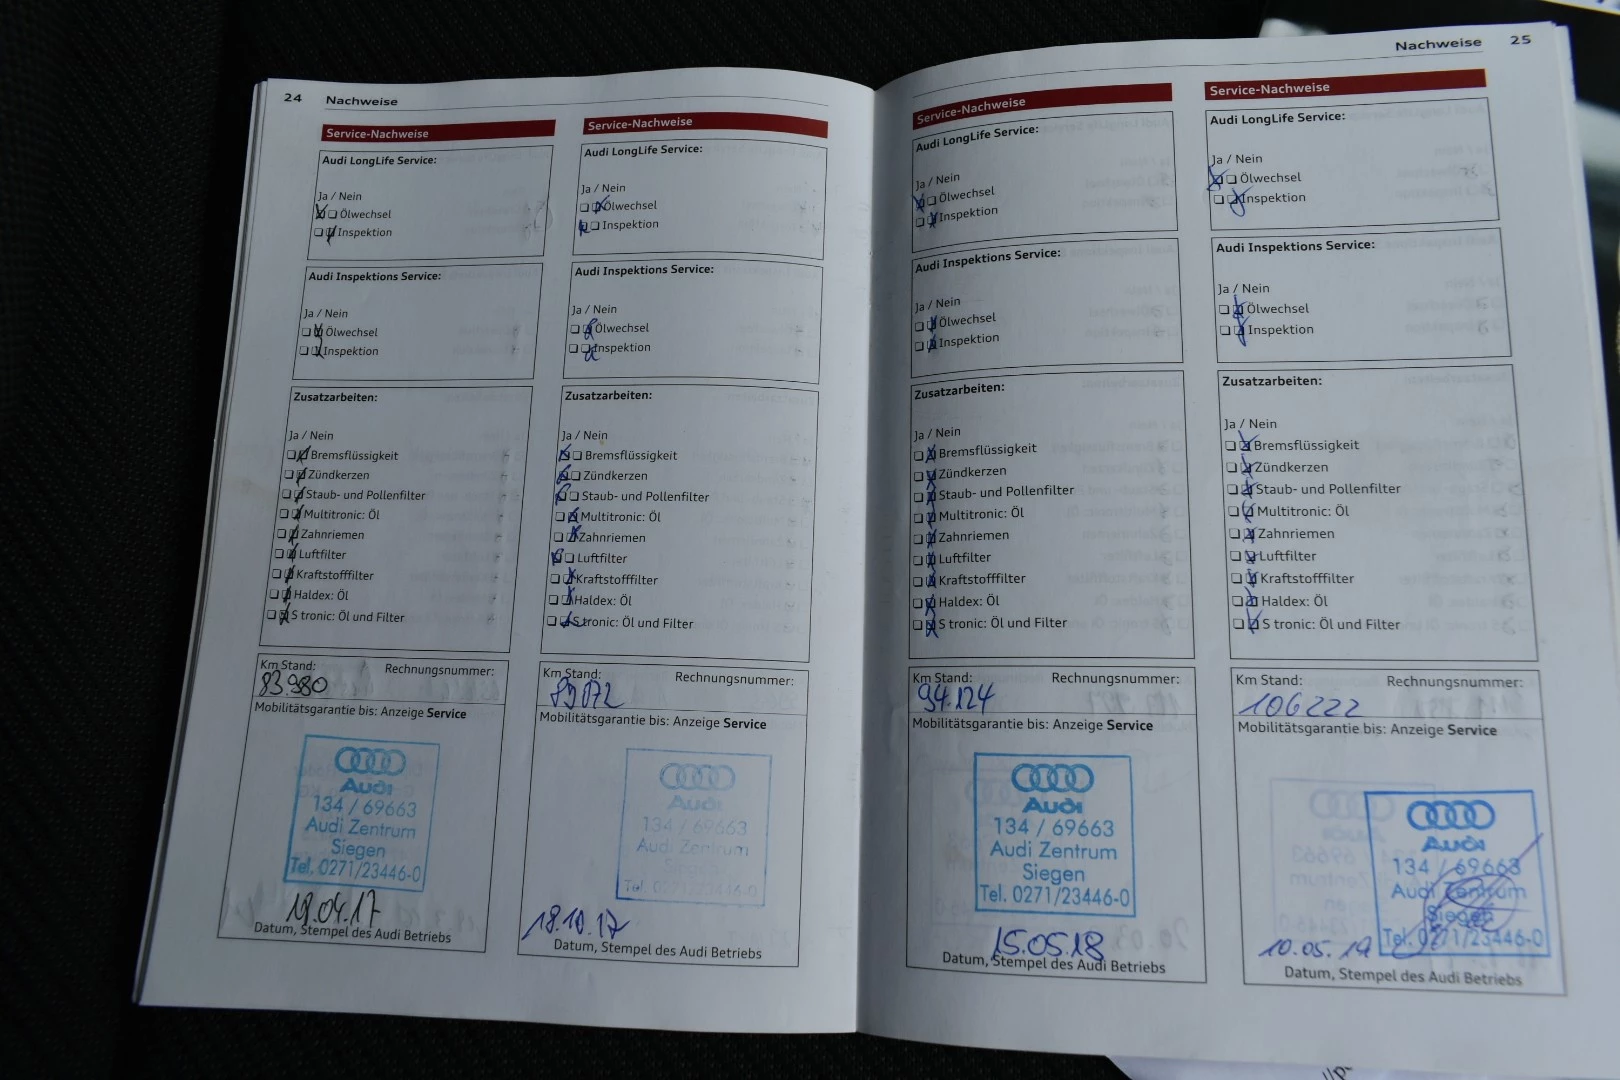 24 Nachweise
Service-Nachweise
Audi LongLife Service:
Ja / Nein
Ölwechsel
Inspektion
Audi Inspektions Service:
Ja / Nein
Ölwechsel
Inspektion
Zusatzarbeiten:
Ja / Nein
Bremsflüssigkeit
Zündkerzen
Staub- und Pollenfilter
Multitronic: Öl
Zahnriemen
Luftfilter
Kraftstofffilter
Haldex: Öl
S tronic: Öl und Filter
Km Stand: Rechnungsnummer:
83.980
Mobilitätsgarantie bis: Anzeige Service
Audi
134 / 69663
Audi Zentrum
Siegen
Tel. 0271/23446-0
19.04.17
Datum, Stempel des Audi Betriebs
Service-Nachweise
Audi LongLife Service:
Ja / Nein
Ölwechsel
Inspektion
Audi Inspektions Service:
Ja / Nein
Ölwechsel
Inspektion
Zusatzarbeiten:
Ja / Nein
Bremsflüssigkeit
Zündkerzen
Staub- und Pollenfilter
Multitronic: Öl
Zahnriemen
Luftfilter
Kraftstofffilter
Haldex: Öl
S tronic: Öl und Filter
Km Stand: Rechnungsnummer:
Mobilitätsgarantie bis: Anzeige Service
Audi
134 / 69663
Audi Zentrum
Siegen
Tel. 0271/23446-0
18.10.17
Datum, Stempel des Audi Betriebs
Nachweise 25
Service-Nachweise
Audi LongLife Service:
Ja / Nein
Ölwechsel
Inspektion
Audi Inspektions Service:
Ja / Nein
Ölwechsel
Inspektion
Zusatzarbeiten:
Ja / Nein
Bremsflüssigkeit
Zündkerzen
Staub- und Pollenfilter
Multitronic: Öl
Zahnriemen
Luftfilter
Kraftstofffilter
Haldex: Öl
S tronic: Öl und Filter
Km Stand: Rechnungsnummer:
94.124
Mobilitätsgarantie bis: Anzeige Service
Audi
134 / 69663
Audi Zentrum
Siegen
Tel. 0271/23446-0
15.05.18
Datum, Stempel des Audi Betriebs
Service-Nachweise
Audi LongLife Service:
Ja / Nein
Ölwechsel
Inspektion
Audi Inspektions Service:
Ja / Nein
Ölwechsel
Inspektion
Zusatzarbeiten:
Ja / Nein
Bremsflüssigkeit
Zündkerzen
Staub- und Pollenfilter
Multitronic: Öl
Zahnriemen
Luftfilter
Kraftstofffilter
Haldex: Öl
S tronic: Öl und Filter
Km Stand: Rechnungsnummer:
106222
Mobilitätsgarantie bis: Anzeige Service
Audi
134 / 69663
Audi Zentrum
Siegen
Tel. 0271/23446-0
10.05.19
Datum, Stempel des Audi Betriebs